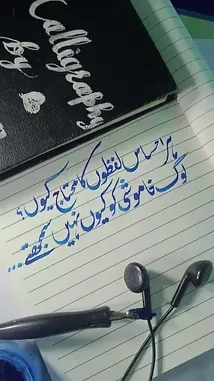 Calligraphy
by
ہر احساس لفظوں کا محتاج کیوں؟
لوگ خاموشی کو کیوں نہیں سمجھتے...